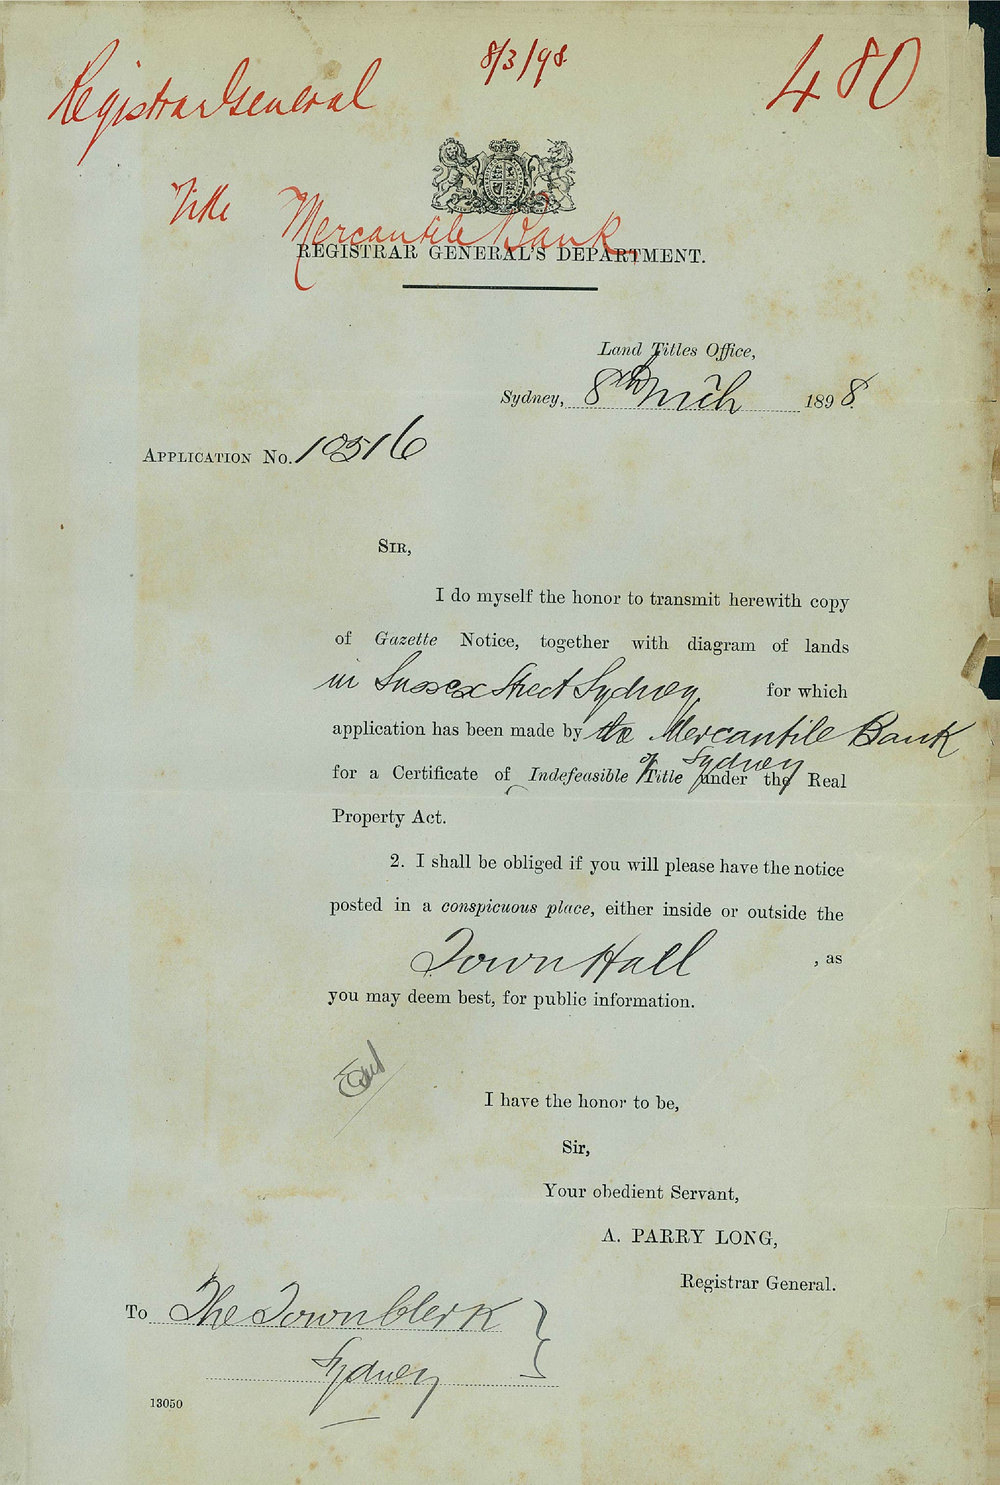 8/3/98
Registrar General
480
Title Mercantile Bank
REGISTRAR GENERAL'S DEPARTMENT.
Land Titles Office,
Sydney, 8th Mch 1898.
APPLICATION No. 10516
SIR,
I do myself the honor to transmit herewith copy
of Gazette Notice, together with diagram of lands
in Sussex Street Sydney for which
application has been made by the Mercantile Bank
of Sydney
for a Certificate of Indefeasible Title under the Real
Property Act.
2. I shall be obliged if you will please have the notice
posted in a conspicuous place, either inside or outside the
Town Hall, as
you may deem best, for public information.
I have the honor to be,
Sir,
Your obedient Servant,
A. PARRY LONG,
Registrar General.
To The Town Clerk
Sydney
13050